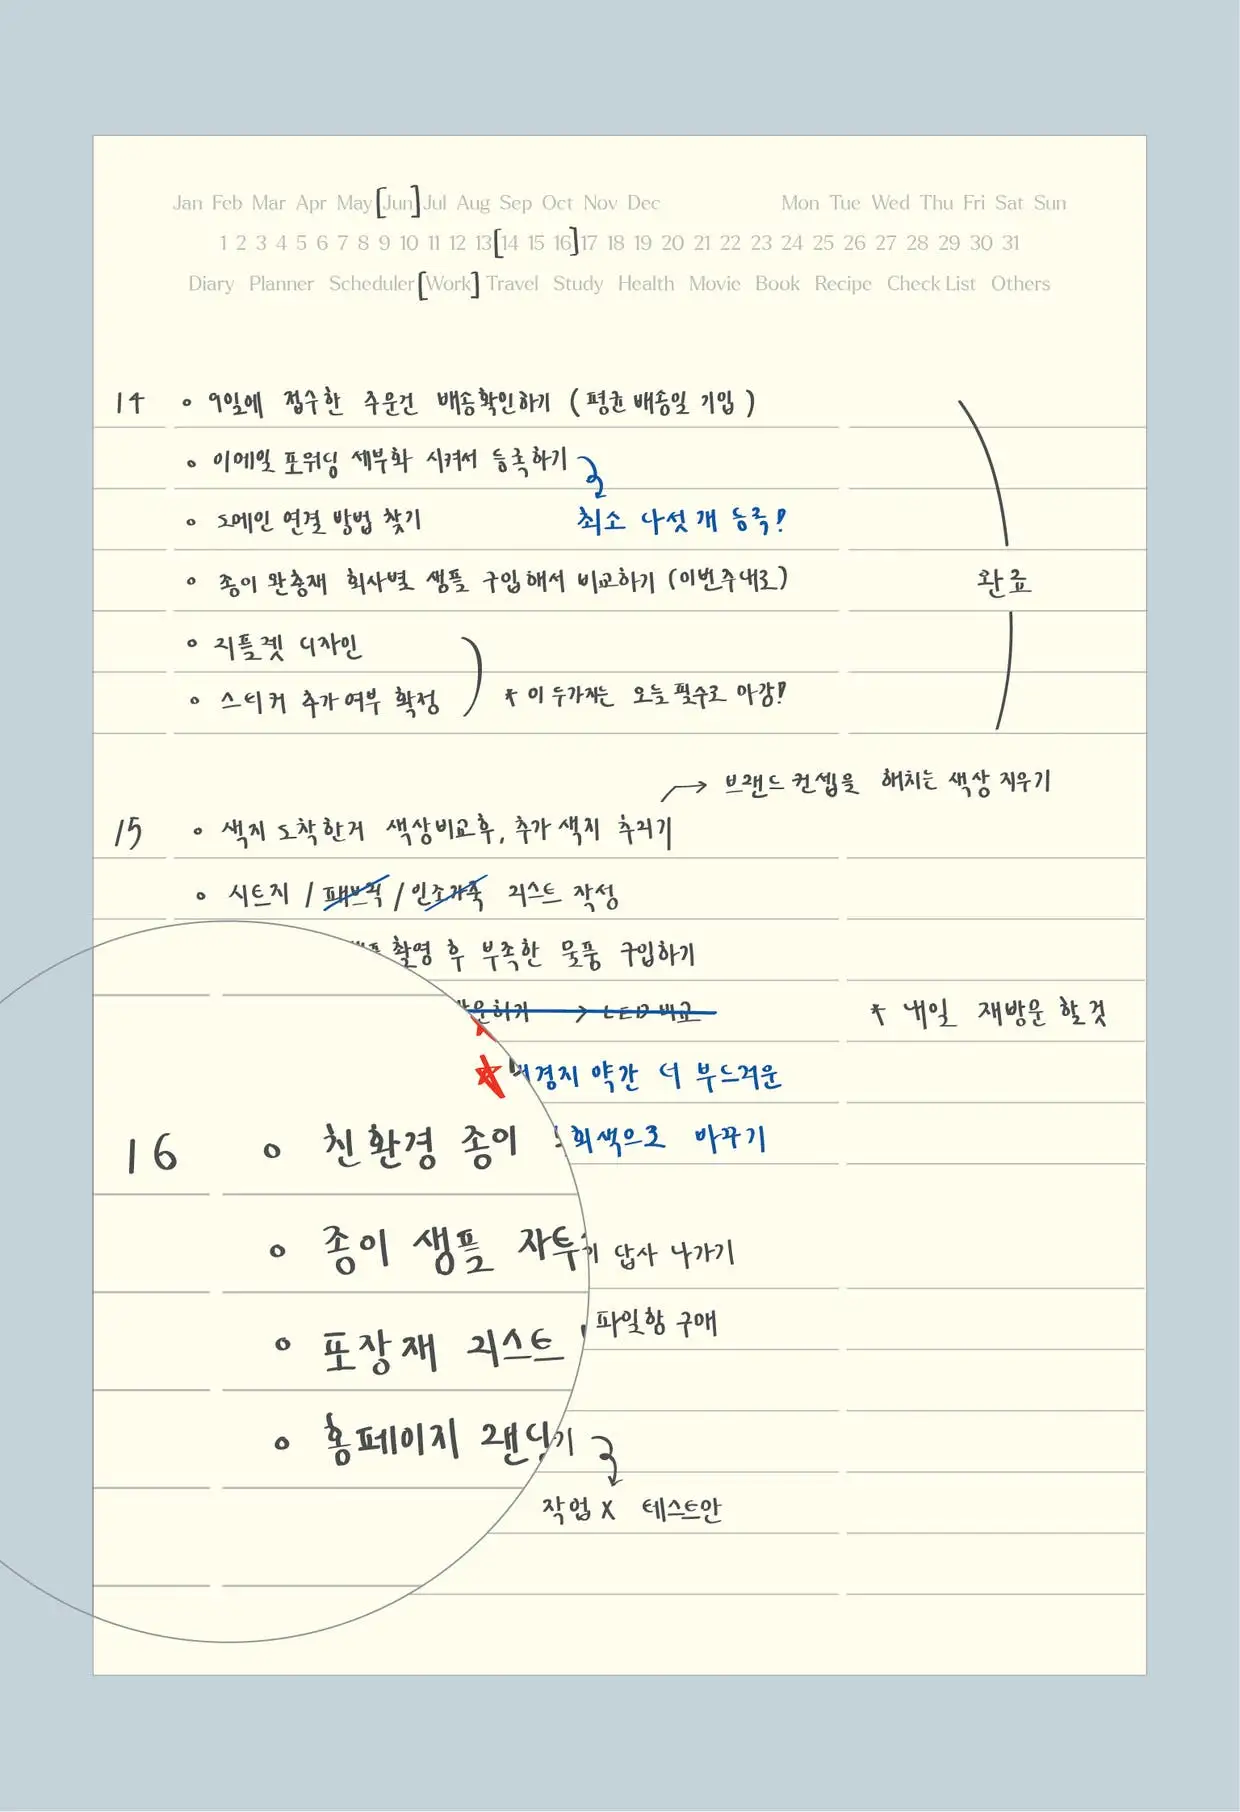 Jan Feb Mar Apr May [Jun] Jul Aug Sep Oct Nov Dec Mon Tue Wed Thu Fri Sat Sun
1 2 3 4 5 6 7 8 9 10 11 12 13 [14 15 16] 17 18 19 20 21 22 23 24 25 26 27 28 29 30 31
Diary Planner Scheduler [Work] Travel Study Health Movie Book Recipe Check List Others
14 ∘ 9일에 접수한 주문건 배송확인하기 (평균 배송일 기입)
∘ 이메일 포워딩 세부화 시켜서 등록하기
∘ 도메인 연결 방법 찾기 최소 다섯 개 등록!
∘ 종이 완충재 회사별 샘플 구입해서 비교하기 (이번주내로) 완료
∘ 리플렛 디자인
∘ 스티커 추가여부 확정 * 이 두가지는 오늘 필수로 마감!
→ 브랜드 컨셉을 해치는 색상 지우기
15 ∘ 색지 도착한거 색상비교후, 추가 색지 추리기
∘ 시트지 / 패브릭 / 인조가죽 리스트 작성
촬영 후 부족한 물품 구입하기
→ LED 비교 * 내일 재방문 할 것
약간 더 부드러운
16 ∘ 친환경 종이 회색으로 바꾸기
∘ 종이 샘플 답사 나가기
∘ 포장재 리스트 파일함 구매
∘ 홈페이지
작업 X 테스트만